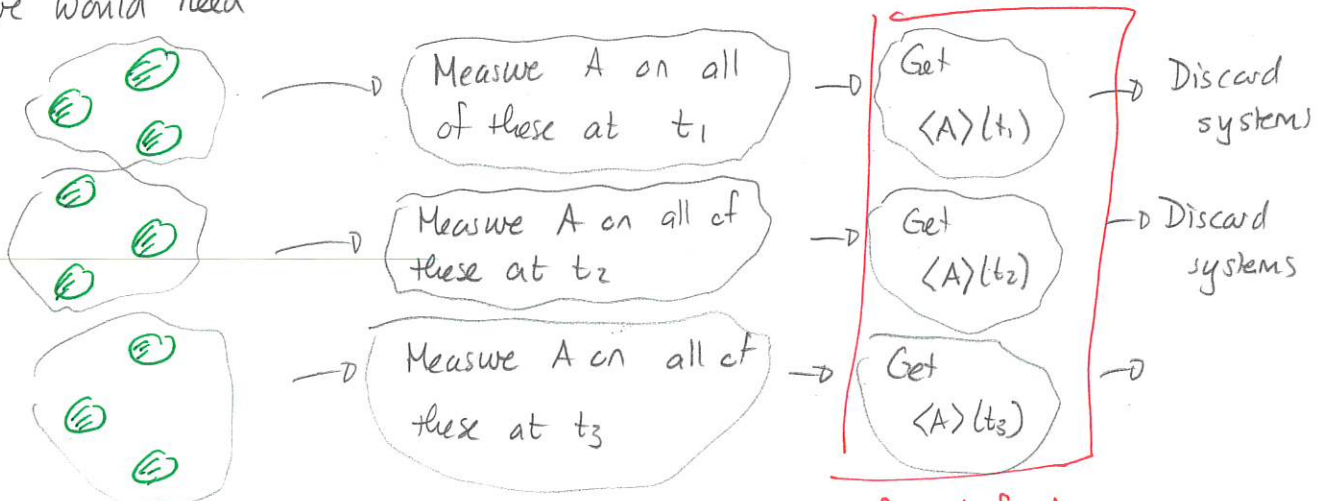 we would need
Measure A on all
of these at t₁
Get
⟨A⟩(t₁)
Discard
systems
Measure A on all of
these at t₂
Get
⟨A⟩(t₂)
Discard
systems
Measure A on all of
these at t₃
Get
⟨A⟩(t₃)